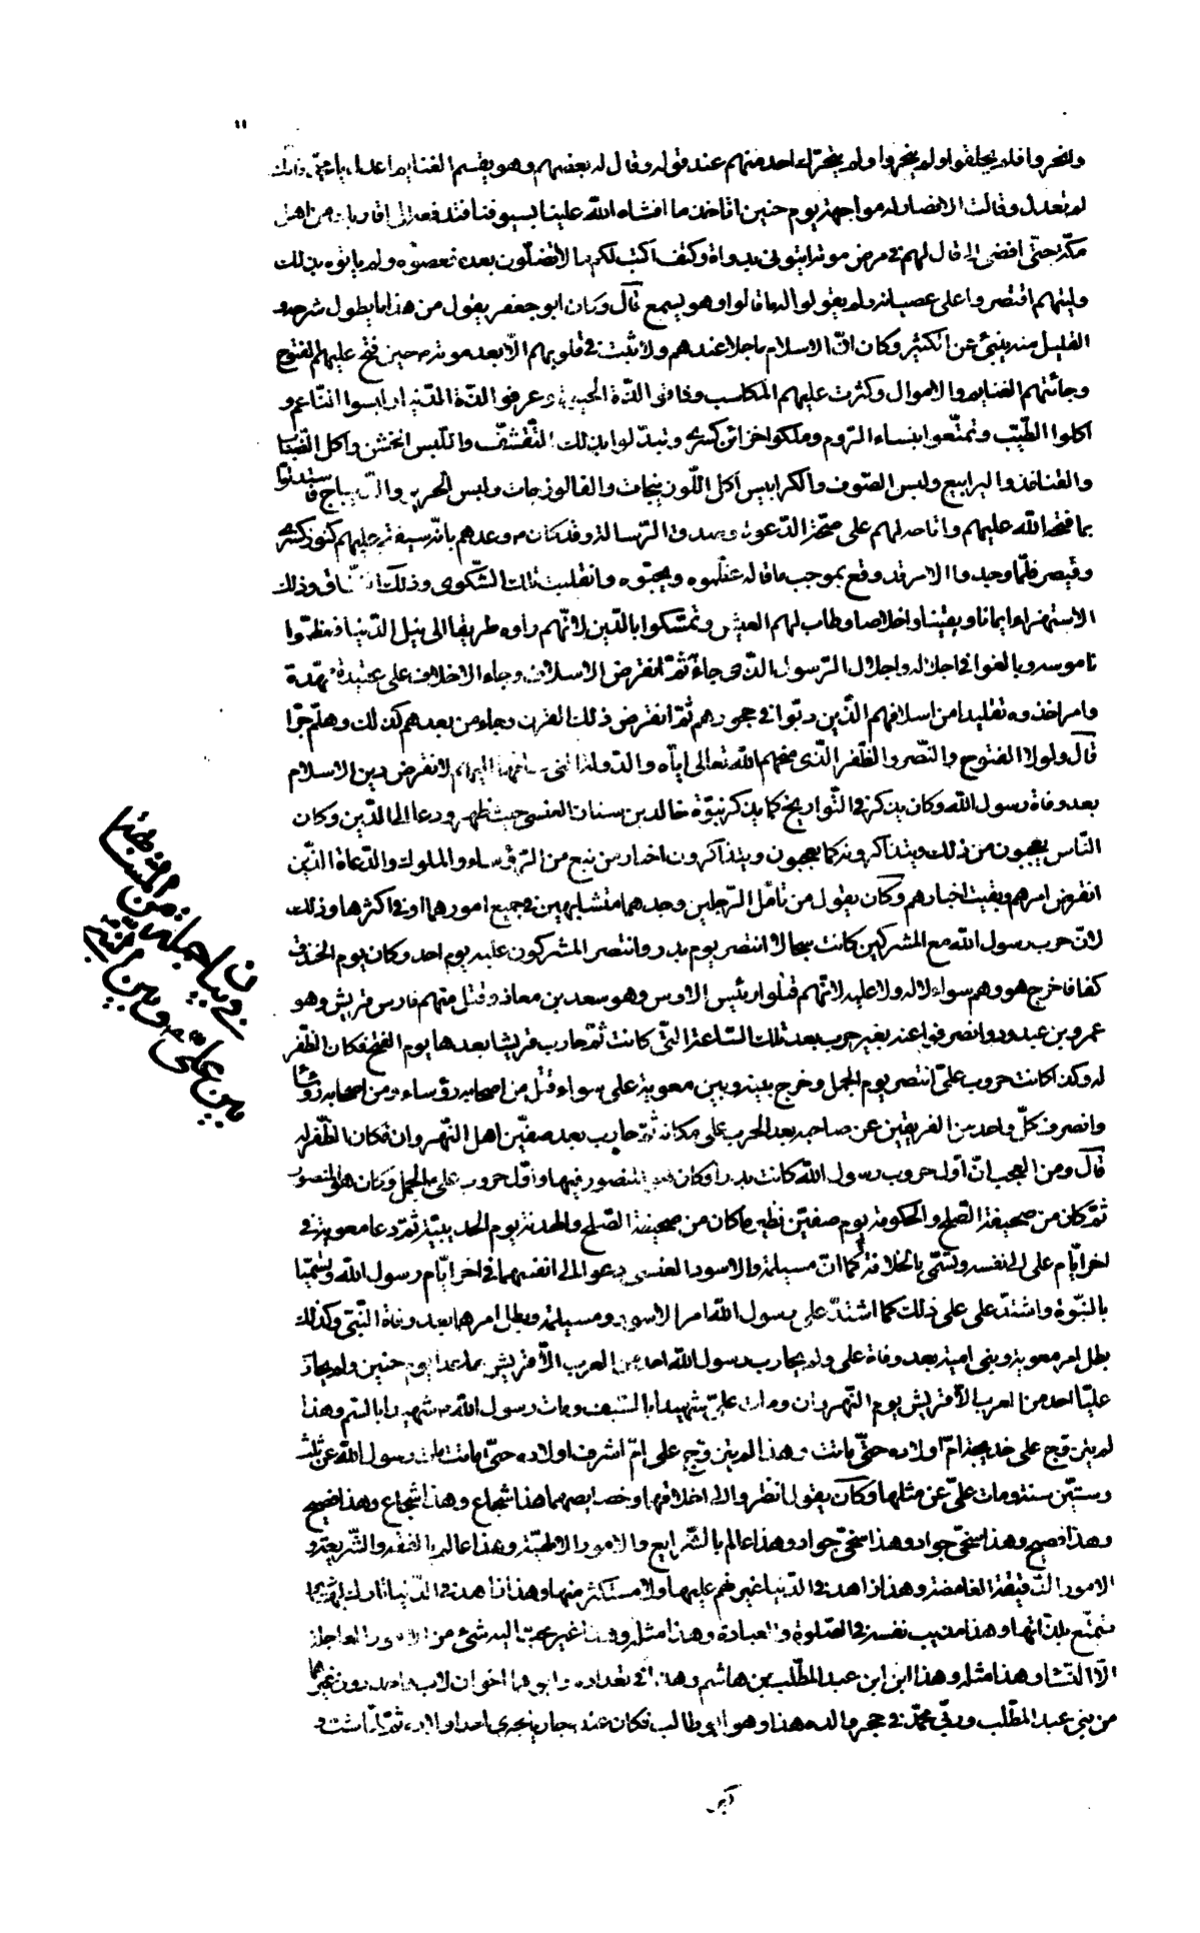 وانحروا فلم يحلقوا ولم ينحروا ولم يتحرك احد منهم عند قوله وقال له بعضهم وهو يقسم الغنايم اعدل يا محمد فانك
لم تعدل وقالت الانصار له مواجهة يوم حنين اتاخذ ما افاء الله علينا بسيوفنا فتدفعه الى اقاربك من اهل
مكة حتى افضى الى قال لهم فى مرض موته ايتونى بدواة وكتف اكتب لكم ما لا تضلون بعده فعصوه ولم ياتوه بذلك
وليتهم اقتصروا على عصيانه ولم يقولوا له ما قالوا وهو يسمع قال وكان ابو جعفر يقول من هذا ما يطول شرحه و
القليل منه ينبئ عن الكثير وكان ان الاسلام ما حلا عندهم ولا ثبت فى قلوبهم الا بعد موته حين فتح عليهم الفتوح
وجائتهم الغنايم والاموال وكثرت عليهم المكاسب وذاقوا لذة الحيوة وعرفوا لذة الدنيا ولبسوا الناعم و
اكلوا الطيب وتمتعوا بنساء الروم وملكوا خزائن كسرى وتبدلوا بذلك التقشف واللبس الخشن واكل الضباب
والقنافذ واليرابيع ولبس الصوف والكرابيس اكل اللوزينجات والفالوذجات ولبس الحرير والديباج فاستدلوا
بما فتحه الله عليهم واتاحه لهم على صحة الدعوة وصدق الرسالة وقد كان وعدهم بانه سيفتح عليهم كنوز كسرى
وقيصر فلما وجدوا الامر قد وقع بموجب ما قاله عظموه وبجلوه وانقلبت تلك الشكوى وذلك النفاق وذلك
الاستهزاء ايمانا ويقينا واخلاصا وطاب لهم العيش وتمسكوا بالدين لانهم راوه طريقا الى نيل الدنيا فعظموا
ناموسه وبالغوا فى اجلاله واجلال الرسول الذى جاء به ثم انقرض الاسلاف وجاء الاخلاف على عقيدة ممهدة
وامر اخذوه تقليدا من اسلافهم الذين ربوا فى حجورهم ثم انقرض ذلك القرن وجاء من بعدهم كذلك وهلم جرا
قال ولولا الفتوح والنصر والظفر الذى منحهم الله تعالى اياه والدولة التى ساقها اليهم لانقرض دين الاسلام
بعد وفاة رسول الله وكان يذكر فى التواريخ كما يذكر نبوة خالد بن سنان العبسى حيث ظهر ودعا الى الدين وكان
الناس يعجبون من ذلك ويتذاكرونه كما يعجبون ويتذاكرون اخبار من نبع من الرؤساء والملوك والدعاة الذين
انقرض امرهم وبقيت اخبارهم وكان يقول من تامل الرجلين وجدهما متشابهين فى جميع امورهما او فى اكثرها وذلك
لان حرب رسول الله مع المشركين كانت سجالا انتصر يوم بدر وانتصر المشركون عليه يوم احد وكان يوم الخندق
كفافا خرج هو وهم سواء لا له ولا عليه لانهم قتلوا رئيس الاوس وهو سعد بن معاذ وقتل منهم فارس قريش وهو
عمرو بن عبد ود وانصرفوا عنه بغير حرب بعد تلك الساعة التى كانت ثم حارب قريشا بعدها يوم الفتح فكان الظفر
له وهكذا كانت حروب على انتصر يوم الجمل وخرج بينه وبين معوية على سواء قتل من اصحابه رؤساء ومن اصحابه رؤساء
وانصرف كل واحد من الفريقين عن صاحبه بعد الحرب على مكانه ثم حارب بعد صفين اهل النهروان فكان الظفر له
قال ومن العجب ان اول حروب رسول الله كانت بدرا وكان هو المنصور فيها واول حروب على الجمل وكان هو المنصور
ثم كان من صحيفة الصلح والحكومة يوم صفين نظير ما كان من صحيفة الصلح والهدنة يوم الحديبية ثم دعا معوية فى
اخر ايام على الى نفسه وتسمى بالخلافة كما ان مسيلمة والاسود العنسى دعوا الى انفسهما فى اخر ايام رسول الله وتسميا
بالنبوة واشتد على على ذلك كما اشتد على رسول الله امر الاسود ومسيلمة وبطل امرهما بعد وفاة النبى وكذلك
بطل امر معوية وبنى امية بعد وفاة على ولم يحارب رسول الله احد من العرب الا قريش ما عدا يوم حنين ولم يحارب
عليا احد من العرب الا قريش يوم النهروان ومات على شهيدا بالسيف ومات رسول الله شهيدا بالسم وهذا
لم يتزوج على خديجة ام اولاده حتى ماتت وهذا لم يتزوج على ام اشرف اولاده حتى ماتت مات رسول الله عن ثلث
وستين سنة ومات على عن مثلها وكان يقول انظروا الى اخلاقهما وخصايصهما هذا شجاع وهذا شجاع وهذا فصيح
وهذا فصيح وهذا سخى جواد وهذا سخى جواد وهذا عالم بالشرايع والامور الالهية وهذا عالم بالفقه والشريعة و
الامور الدقيقة الغامضة وهذا زاهد فى الدنيا غير نهم عليها ولا مستكثر منها وهذا زاهد فى الدنيا تارك لها غير
متمتع بلذاتها وهذا مذيب نفسه فى الصلوة والعبادة وهذا مثله وهذا غير محبب اليه شئ من الامور العاجلة
الا النساء وهذا مثله وهذا ابن ابن عبد المطلب بن هاشم وهذا فى تعداده وابوهما اخوان لاب وام دون غيرهما
من بنى عبد المطلب وربى محمد فى حجر والد هذا وهو ابو طالب فكان عنده جاريا مجرى احد اولاده ثم لما شب و
ن
فى بيان جملة من المشابهة
بين على وبين النبى
كبر